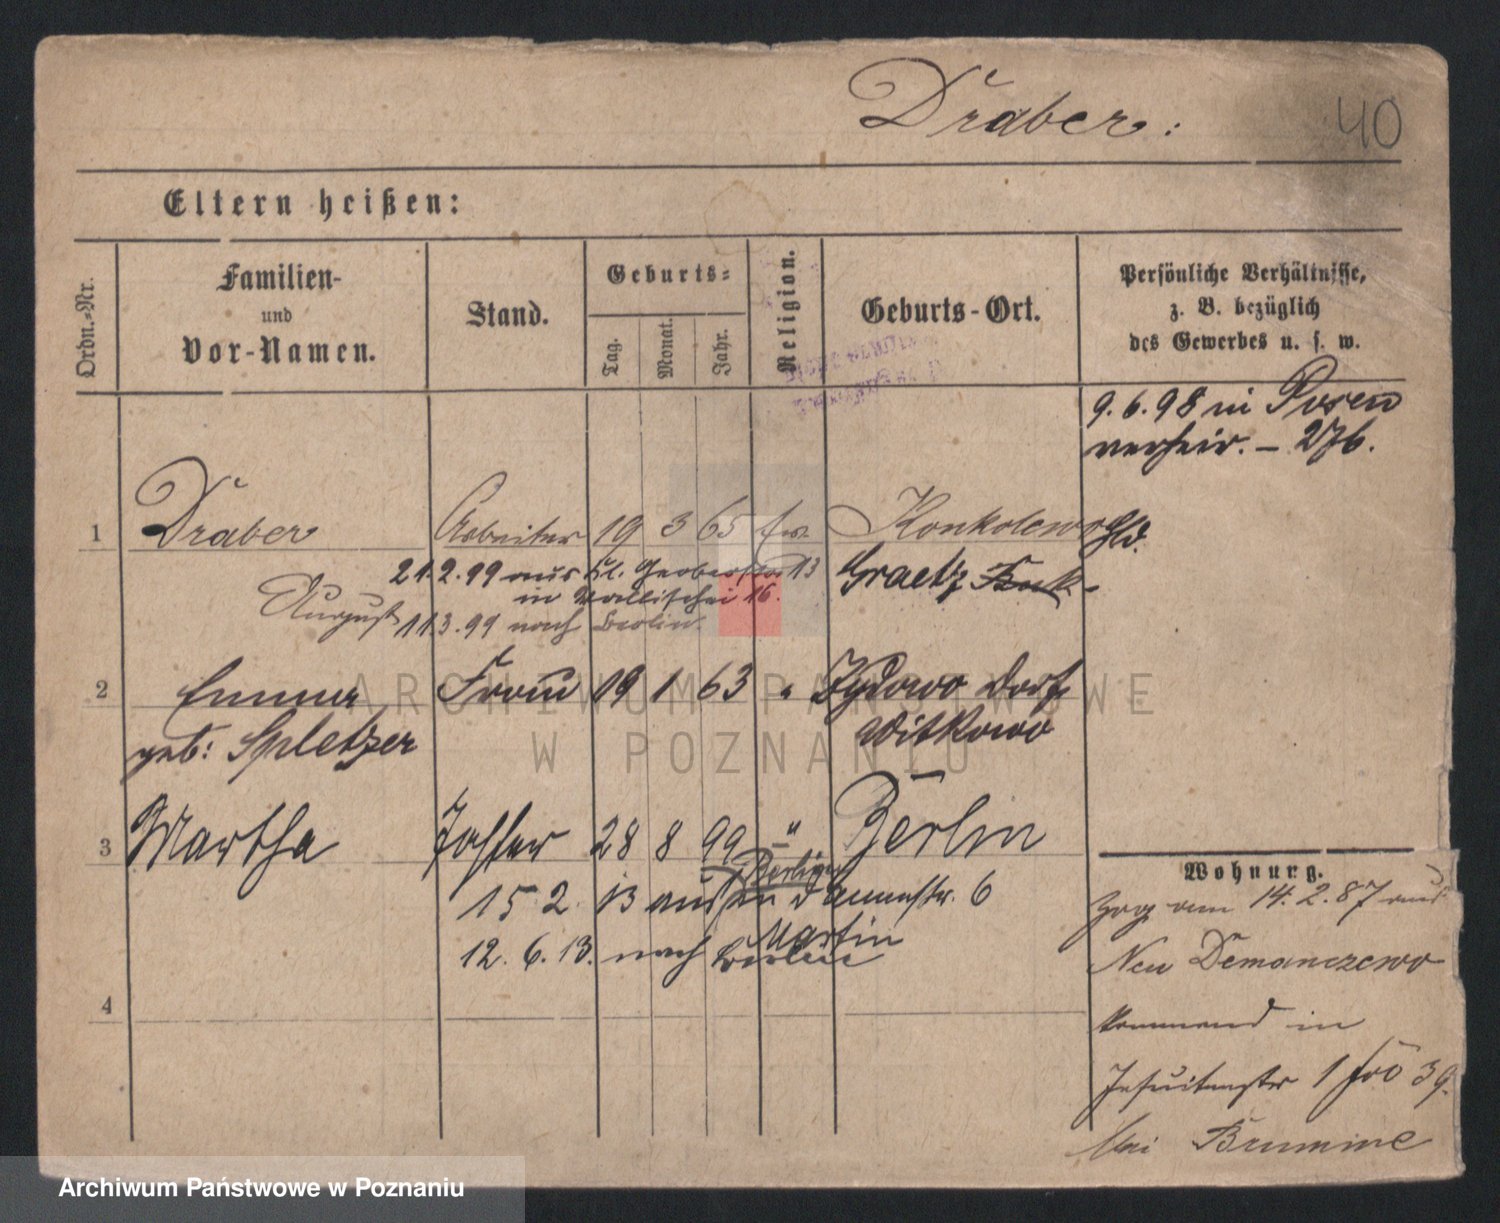 Draber:
40
Eltern heißen:
Ordn.-Nr.
Familien-
und
Vor-Namen.
Stand.
Geburts-
Tag.
Monat.
Jahr.
Religion.
Geburts-Ort.
Persönliche Verhältnisse,
z. B. bezüglich
des Gewerbes u. s. w.
9.6.98 in Posen
verheir. –
1 Draber Arbeiter 19 3 65 Konkolewo
21.2.99 aus Kl. Gerberstr 13 Graetz
August in Wallischei 16.
11.3.99 nach Berlin.
2 Emma Frau 19 1 63 " Zydowo Dorf
geb: Spletzer Witkowo
3 Martha Tochter 28 8 99 " Berlin
15 2. 13 aus Berlin 6
12. 6. 13. nach Berlin
Martin
4
Wohnung.
Zog am 14.2.87 aus
Neu Demanczewo
kommend in
Jesuitenstr 1 fro 39.
bei Brumme
ARCHIWUM PAŃSTWOWE
W POZNANIU
Archiwum Państwowe w Poznaniu